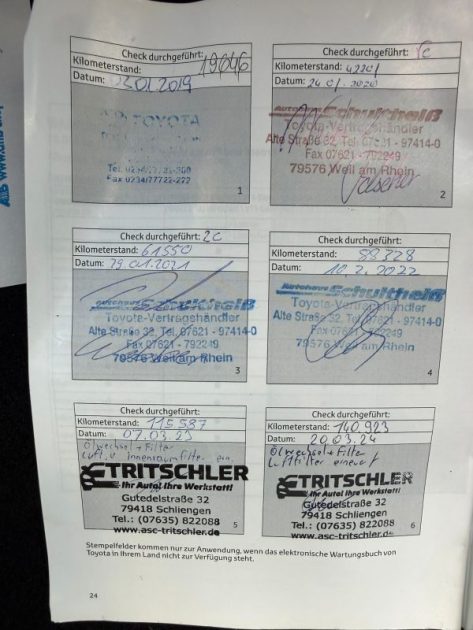 Check durchgeführt:
Kilometerstand: 19646
Datum: 23.01.2019
TOYOTA
Tel. 0234/77722-200
Fax 0234/77722-222
1
Check durchgeführt:
Kilometerstand: 42201
Datum: 24 01. 2020
Autohaus Schultheiß
Toyota-Vertragshändler
Alte Straße 82, Tel. 07621 - 97414-0
Fax 07621 - 792249
79576 Weil am Rhein
2
Check durchgeführt: 2C
Kilometerstand: 61550
Datum: 29.01.2021
Autohaus Schultheiß
Toyota-Vertragshändler
Alte Straße 82, Tel. 07621 - 97414-0
Fax 07621 - 792249
79576 Weil am Rhein
3
Check durchgeführt:
Kilometerstand: 88328
Datum: 10.2.2022
Autohaus Schultheiß
Toyota-Vertragshändler
Alte Straße 82, Tel. 07621 - 97414-0
Fax 07621 - 792249
79576 Weil am Rhein
4
Check durchgeführt:
Kilometerstand: 115587
Datum: 07.03.23
Ölwechsel + Filter
Luft. u Innenraumfilter ern.
TRITSCHLER
Ihr Auto! Ihre Werkstatt!
Gutedelstraße 32
79418 Schliengen
Tel.: (07635) 822088
www.asc-tritschler.de
5
Check durchgeführt:
Kilometerstand: 140.923
Datum: 20.03.24
Ölwechsel + Filter
Luftfilter
TRITSCHLER
Ihr Auto! Ihre Werkstatt!
Gutedelstraße 32
79418 Schliengen
Tel.: (07635) 822088
www.asc-tritschler.de
6
Stempelfelder kommen nur zur Anwendung, wenn das elektronische Wartungsbuch von
Toyota in Ihrem Land nicht zur Verfügung steht.
24